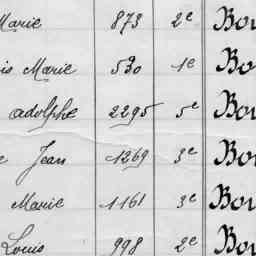 Marie 873 2e Bou
is Marie 530 1e Bou
adolphe 2295 5e Bou
e Jean 1269 3e Bou
Marie 1161 3e Bou
Louis 998 2e Bou